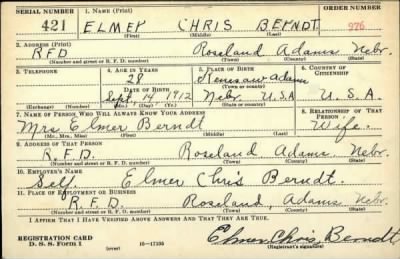 SERIAL NUMBER 1. NAME (Print) ORDER NUMBER
421 ELMER CHRIS BERNDT 976
(First) (Middle) (Last)
2. ADDRESS (Print)
RFD Roseland Adams Nebr.
(Number and street or R. F. D. number) (Town) (County) (State)
3. TELEPHONE 4. AGE IN YEARS 5. PLACE OF BIRTH 6. COUNTRY OF CITIZENSHIP
28 Kenesaw Adams
DATE OF BIRTH (Town or county)
Sept. 14 1912 Nebr. U.S.A U.S.A
(Exchange) (Number) (Mo.) (Day) (Yr.) (State or country)
7. NAME OF PERSON WHO WILL ALWAYS KNOW YOUR ADDRESS 8. RELATIONSHIP OF THAT PERSON
Mrs. Elmer Berndt Wife.
(Mr., Mrs., Miss) (First) (Middle) (Last)
9. ADDRESS OF THAT PERSON
R.F.D. Roseland Adams Nebr.
(Number and street or R. F. D. number) (Town) (County) (State)
10. EMPLOYER'S NAME
Self. Elmer Chris Berndt.
11. PLACE OF EMPLOYMENT OR BUSINESS
R.F.D. Roseland, Adams Nebr.
(Number and street or R. F. D. number) (Town) (County) (State)
I AFFIRM THAT I HAVE VERIFIED ABOVE ANSWERS AND THAT THEY ARE TRUE.
REGISTRATION CARD
D. S. S. FORM 1 (over) 16—17105
Elmer Chris, Berndt
(Registrant's signature)